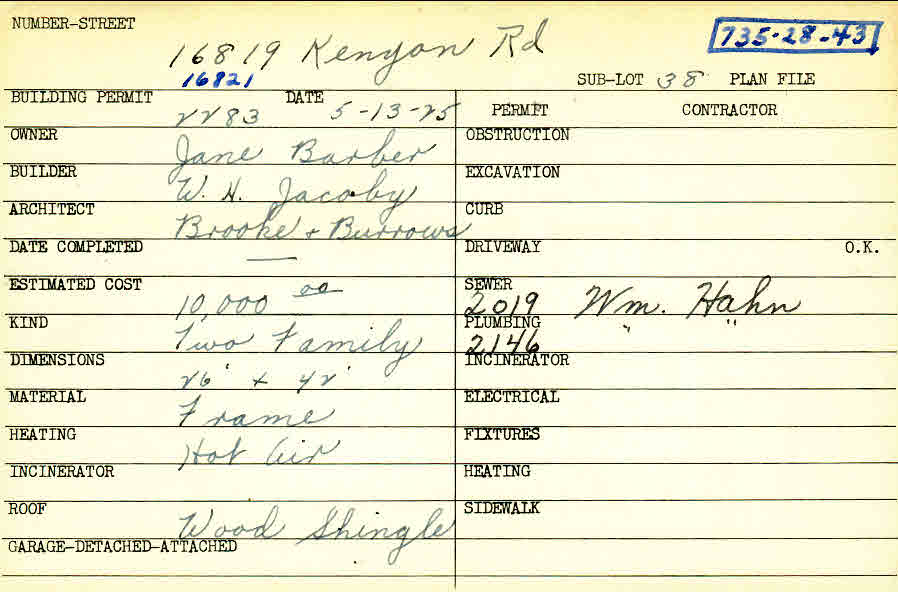 NUMBER-STREET 16819 Kenyon Rd 735-28-43
16821 SUB-LOT 38 PLAN FILE
BUILDING PERMIT 2283 DATE 5-13-25 PERMIT CONTRACTOR
OWNER Jane Barber OBSTRUCTION
BUILDER W. H. Jacoby EXCAVATION
ARCHITECT Brooke + Burrows CURB
DATE COMPLETED — DRIVEWAY O.K.
ESTIMATED COST 10,000 00 SEWER 2019 Wm. Hahn
KIND Two Family PLUMBING 2146 " "
DIMENSIONS 26' x 42' INCINERATOR
MATERIAL Frame ELECTRICAL
HEATING Hot Air FIXTURES
INCINERATOR HEATING
ROOF Wood Shingle SIDEWALK
GARAGE-DETACHED-ATTACHED